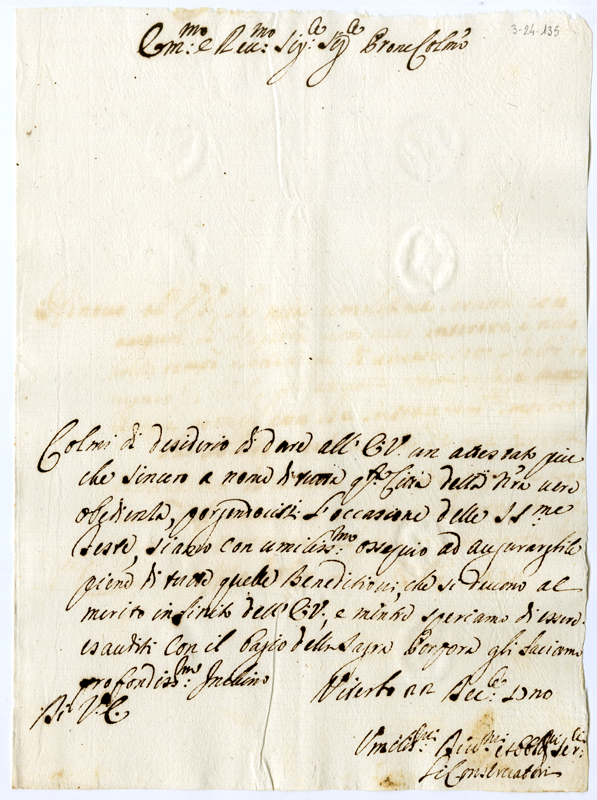 3-24-135
Em:mo e Reu:mo Sig:re Sig:re Prone Colmo
Colmi di desiderio di dare all' E.V. un attestato piu
che sincero a nome di tutta qta Città della nra uera
obedienza, porgendocisi l'occasione delle SS:me
feste, siamo con umiliss:mo ossequio ad augurargliele
piene di tutte quelle Beneditioni, che si deuono al
merito infinito dell' E.V., e mentre speriamo di essere
esauditi con il bagio della Sagra Porpora gli facciamo
profondiss:mo Inchino
Di V.E. Viterbo 22 Dec:
Umiliss:mi Diu:mi et obblig:mi Ser:ri
Li Conseruatori